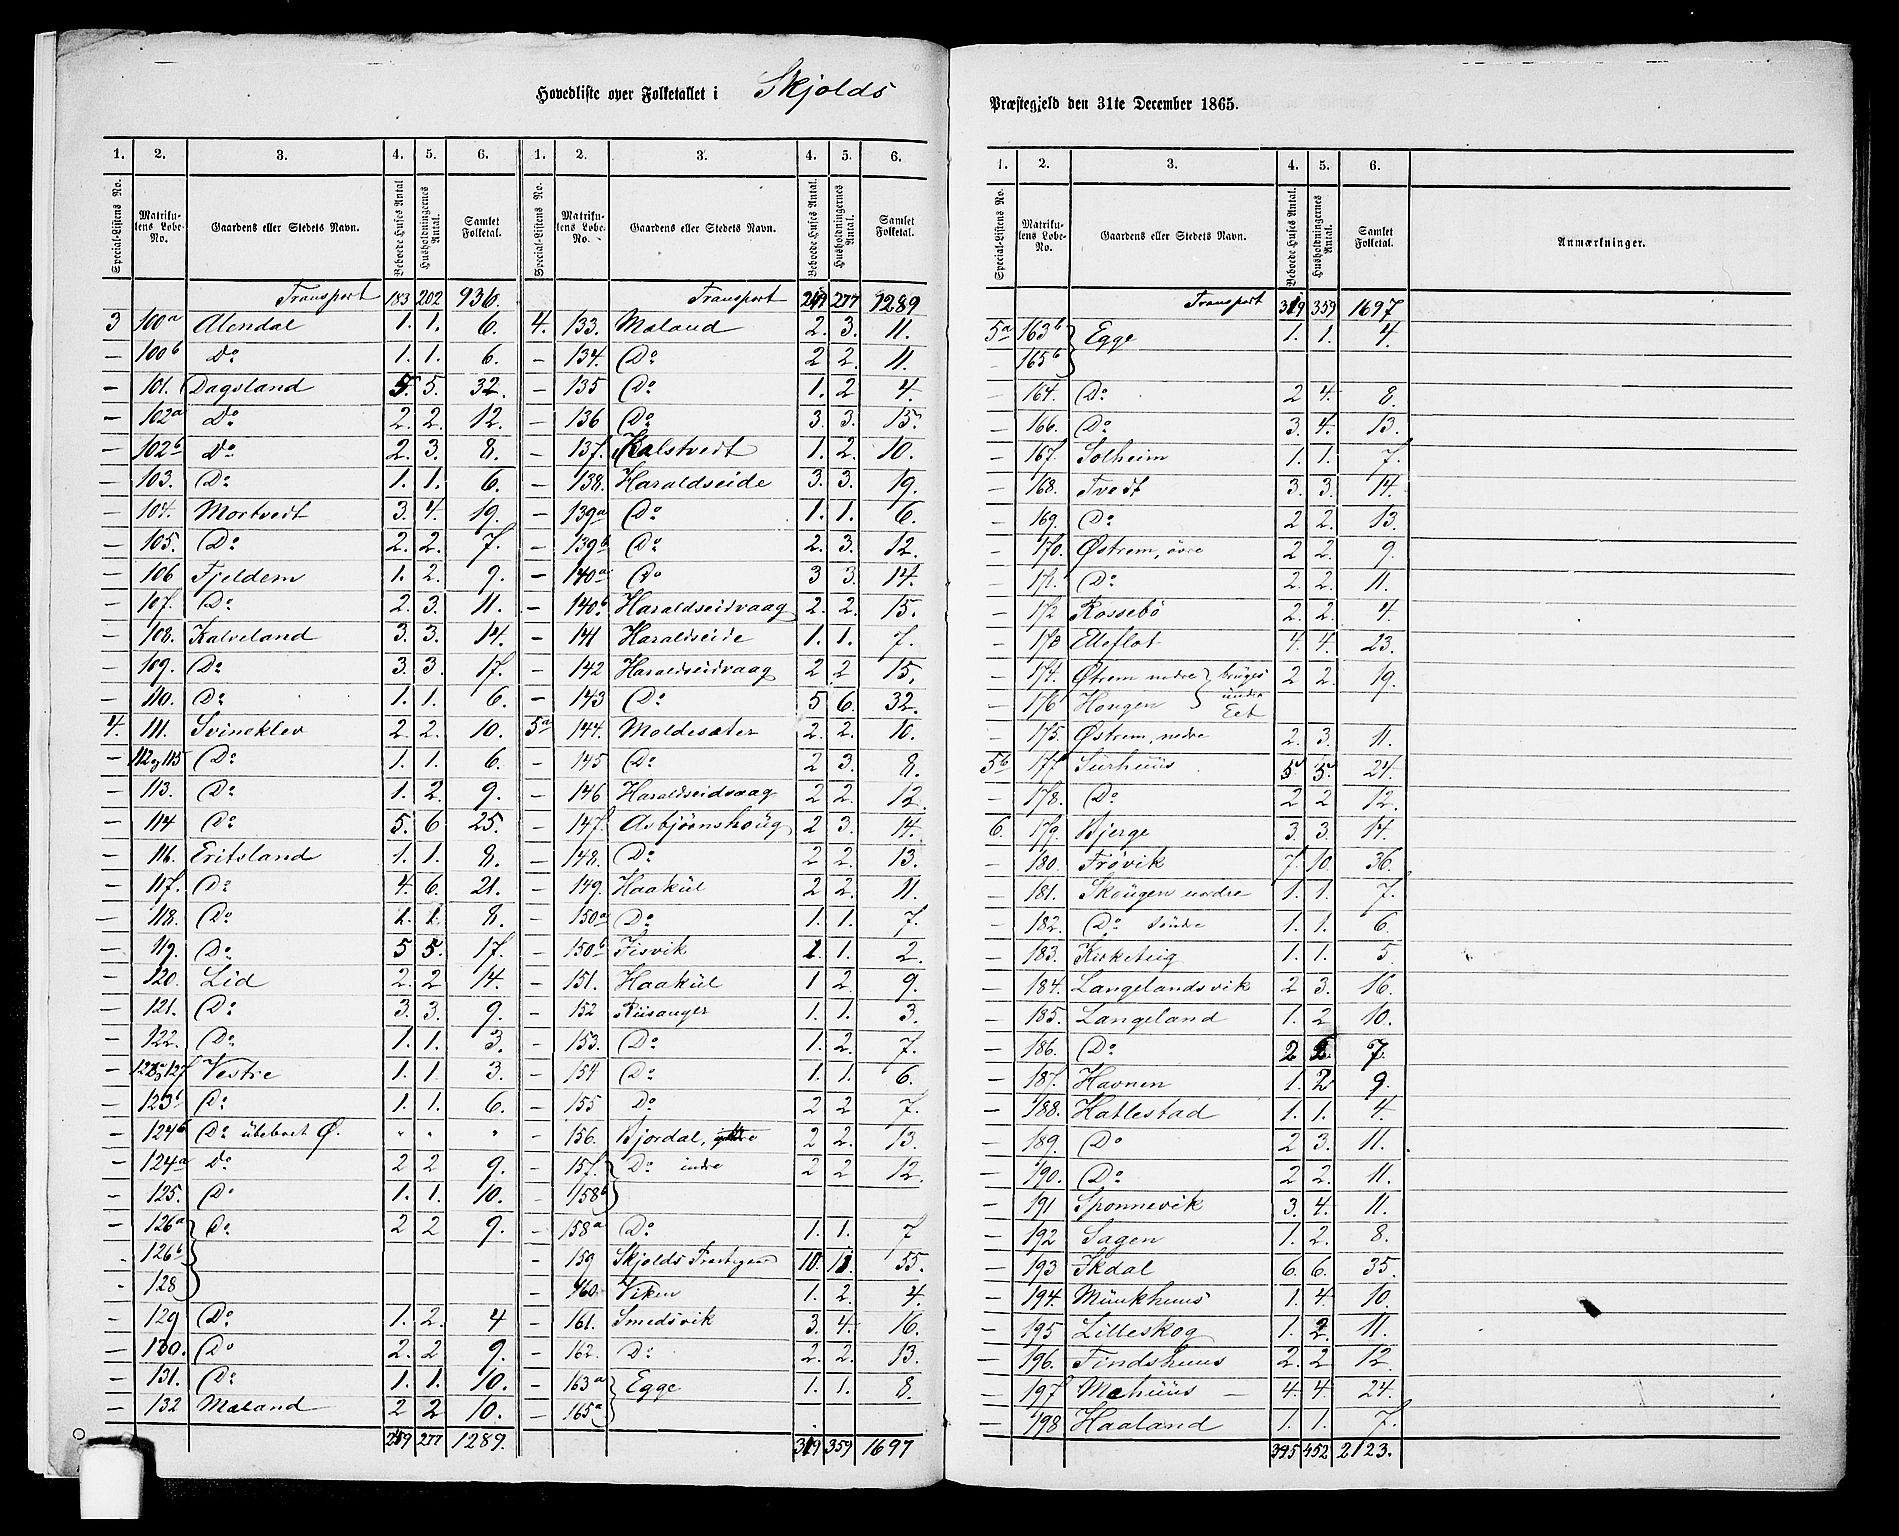 Hovedliste over Folketallet i Skjolds
Præstegjeld den 31te December 1865.
1. 2. 3. 4. 5. 6. 1. 2. 3. 4. 5. 6.
Special-Listens No. Matrikulens Løbe-No. Gaardens eller Stedets Navn. Beboede Huses Antal Husholdningernes Antal. Samlet Folketal. Special-Listens No. Matrikulens Løbe-No. Gaardens eller Stedets Navn. Beboede Huses Antal. Husholdningernes Antal. Samlet Folketal.
Transport 183 202 936.
3 100a Alendal 1. 1. 6.
— 100b Do 1. 1. 6.
— 101. Dagsland 5. 5. 32.
— 102a Do 2. 2. 12.
— 102b Do 2. 3. 8.
— 103. Do 1. 1. 6.
— 104. Mortvedt 3. 4. 19.
— 105. Do 2. 2. 7.
— 106 Fjeldem 1. 2. 9.
— 107. Do 2. 3. 11.
— 108. Kalveland 3. 3. 14.
— 109. Do 3. 3. 17.
— 110. Do 1. 1. 6.
4. 111. Svineklev 2. 2. 10.
— 112 og 115 Do 1. 1. 6.
— 113. Do 1. 2. 9.
— 114 Do 5. 6 25.
— 116. Eritsland 1. 1. 8.
— 117. Do 4. 6. 21.
— 118. Do 1. 1. 8.
— 119. Do 5 5. 17.
— 120. Lid 2. 2 14.
— 121. Do 3. 3. 9.
— 122. Do 1. 1. 3.
— 127 Vestre 1. 1. 3.
— 123b Do 1. 1. 6.
— 124b Do ubeboet Ø. " " "
— 124a Do 2 2 9.
— 125. Do 1. 1. 10.
— 126a Do 2 2 9.
126b
128
— 129 Do 1. 2. 4
— 130. Do 2. 2 9.
— 131. Do 1. 1. 10.
— 132 Mæland 2 2 10.
259 277 1289.
Transport 259 277 1289
4. 133. Mæland 2. 3. 11.
— 134. Do 2 2. 11.
— 135 Do 1. 2 4.
— 136 Do 3. 3. 15.
— 137. Kalstvedt 1. 2. 10.
— 138. Haraldseide 3. 3. 19.
— 139a Do 1. 1. 6.
— 139b Do 2. 3. 12.
— 140a Do 3 3. 14.
— 140b Haraldseidvaag 2. 2. 15.
— 141 Haraldseide 1. 1. 7.
— 142 Haraldseidvaag 2 2 15.
— 143 Do 5 6. 32.
5a 144. Moldesæter 2. 2. 10.
— 145 Do 2 3. 8.
— 146 Haraldseidvaag 2 2. 12.
— 147. Asbjørnshoug 2 3. 14.
— 148. Do 2 2. 13.
— 149. Haakul 2 2. 11.
— 150a Do 1. 1. 7.
— 150b Fisvik 1. 1. 2.
— 151. Haakul 1 2. 9.
— 152 Riisanger 1. 1. 3.
— 153. Do 1. 2. 7.
— 154 Do 1. 1. 6.
— 155 Do 2 2 7.
— 156. Bjordal, 2 2. 13.
— 157. Do indre 2 2 12.
— 158b
— 158a Do 1. 1. 7
159 Skjolds 10. 11. 55.
160 Viken 1. 2. 4.
— 161. Smedsvik 3. 4. 16.
— 162. Do 2. 2. 13.
— 163a Egge 1. 1. 8.
— 165a
319 359 1697
1. 2. 3. 4. 5. 6.
Special-Listens No. Matrikulens Løbe-No. Gaardens eller Stedets Navn. Beboede Huses Antal. Husholdningernes Antal. Samlet Folketal. Anmærkninger.
Transport 319 359 1697
5a 163b Egge 1. 1. 4.
— 165b
— 164. Do 2 4. 8.
— 166. Do 3. 4. 13.
— 167. Solheim 1. 1. 7.
— 168. Tvedt 3. 3. 14.
— 169. Do 2 2. 13.
— 170. Østrem, øvre 2 2. 9.
— 171. Do 2. 2. 11.
— 172 Rossebø 2. 2. 4.
— 173 Elleflot 4. 4. 23.
— 174. Østrem nedre bruges 2 2. 19.
— 176 Hongen under Eet
— 175. Østrem, nedre 2. 3. 11.
5b 177. Surhuus 5 5. 24.
— 178. Do 2 2 12.
6. 179. Bjerge 3. 3. 14.
— 180. Frøvik 7. 10. 36.
— 181. Skougen nordre 1. 1. 7.
— 182. Do søndre 1. 1. 6.
— 183. Kirketeig 1. 1. 5.
— 184. Langelandsvik 2 3. 16.
— 185. Langeland 1. 2 10.
— 186. Do 2 2. 7.
— 187. Havnen 1. 2 9.
— 188. Hatlestad 1. 1. 4.
— 189. Do 2 3. 11.
— 190. Do 2 2. 11.
— 191 Sponnevik 3. 4. 11.
— 192 Sagen 1. 2. 8.
— 193 Ikdal 6. 6. 35.
— 194. Munkhuus 1. 4. 10.
— 195 Lilleskog 1. 2. 11.
— 196. Findshuus 2. 2 12.
— 197 Mehuus — 4. 4. 24.
— 198 Haaland 1. 1. 7.
395 452 2123.